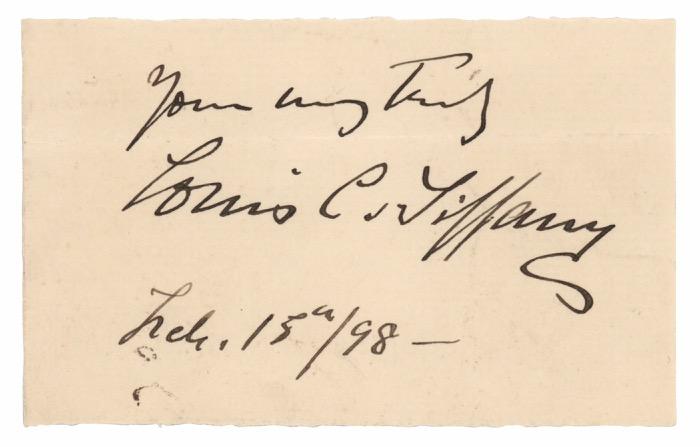 Yours very truly
Louis C. Tiffany
Feb. 15th/98 —